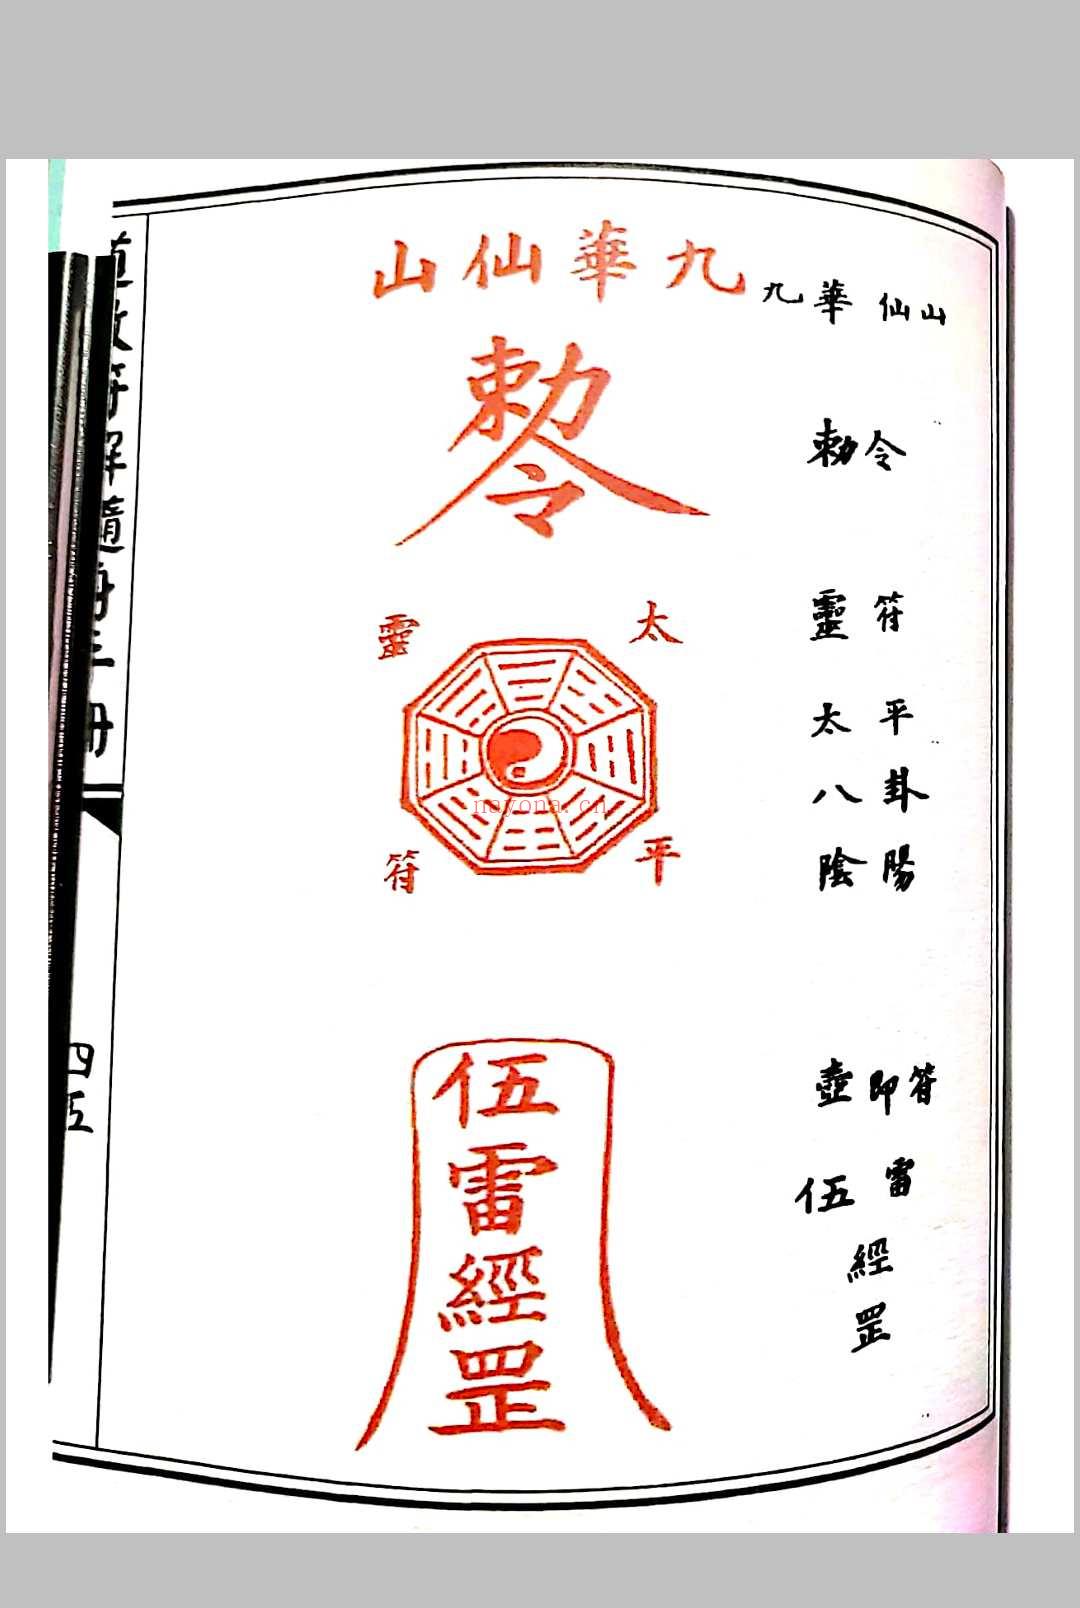 九華仙山
勅令
太平
靈符
伍雷經罡
九華仙山
勅令
靈符
太平
八卦
陰陽
壺即符
伍雷
經
罡
道教符解隨身手册
四五
nayona.cn